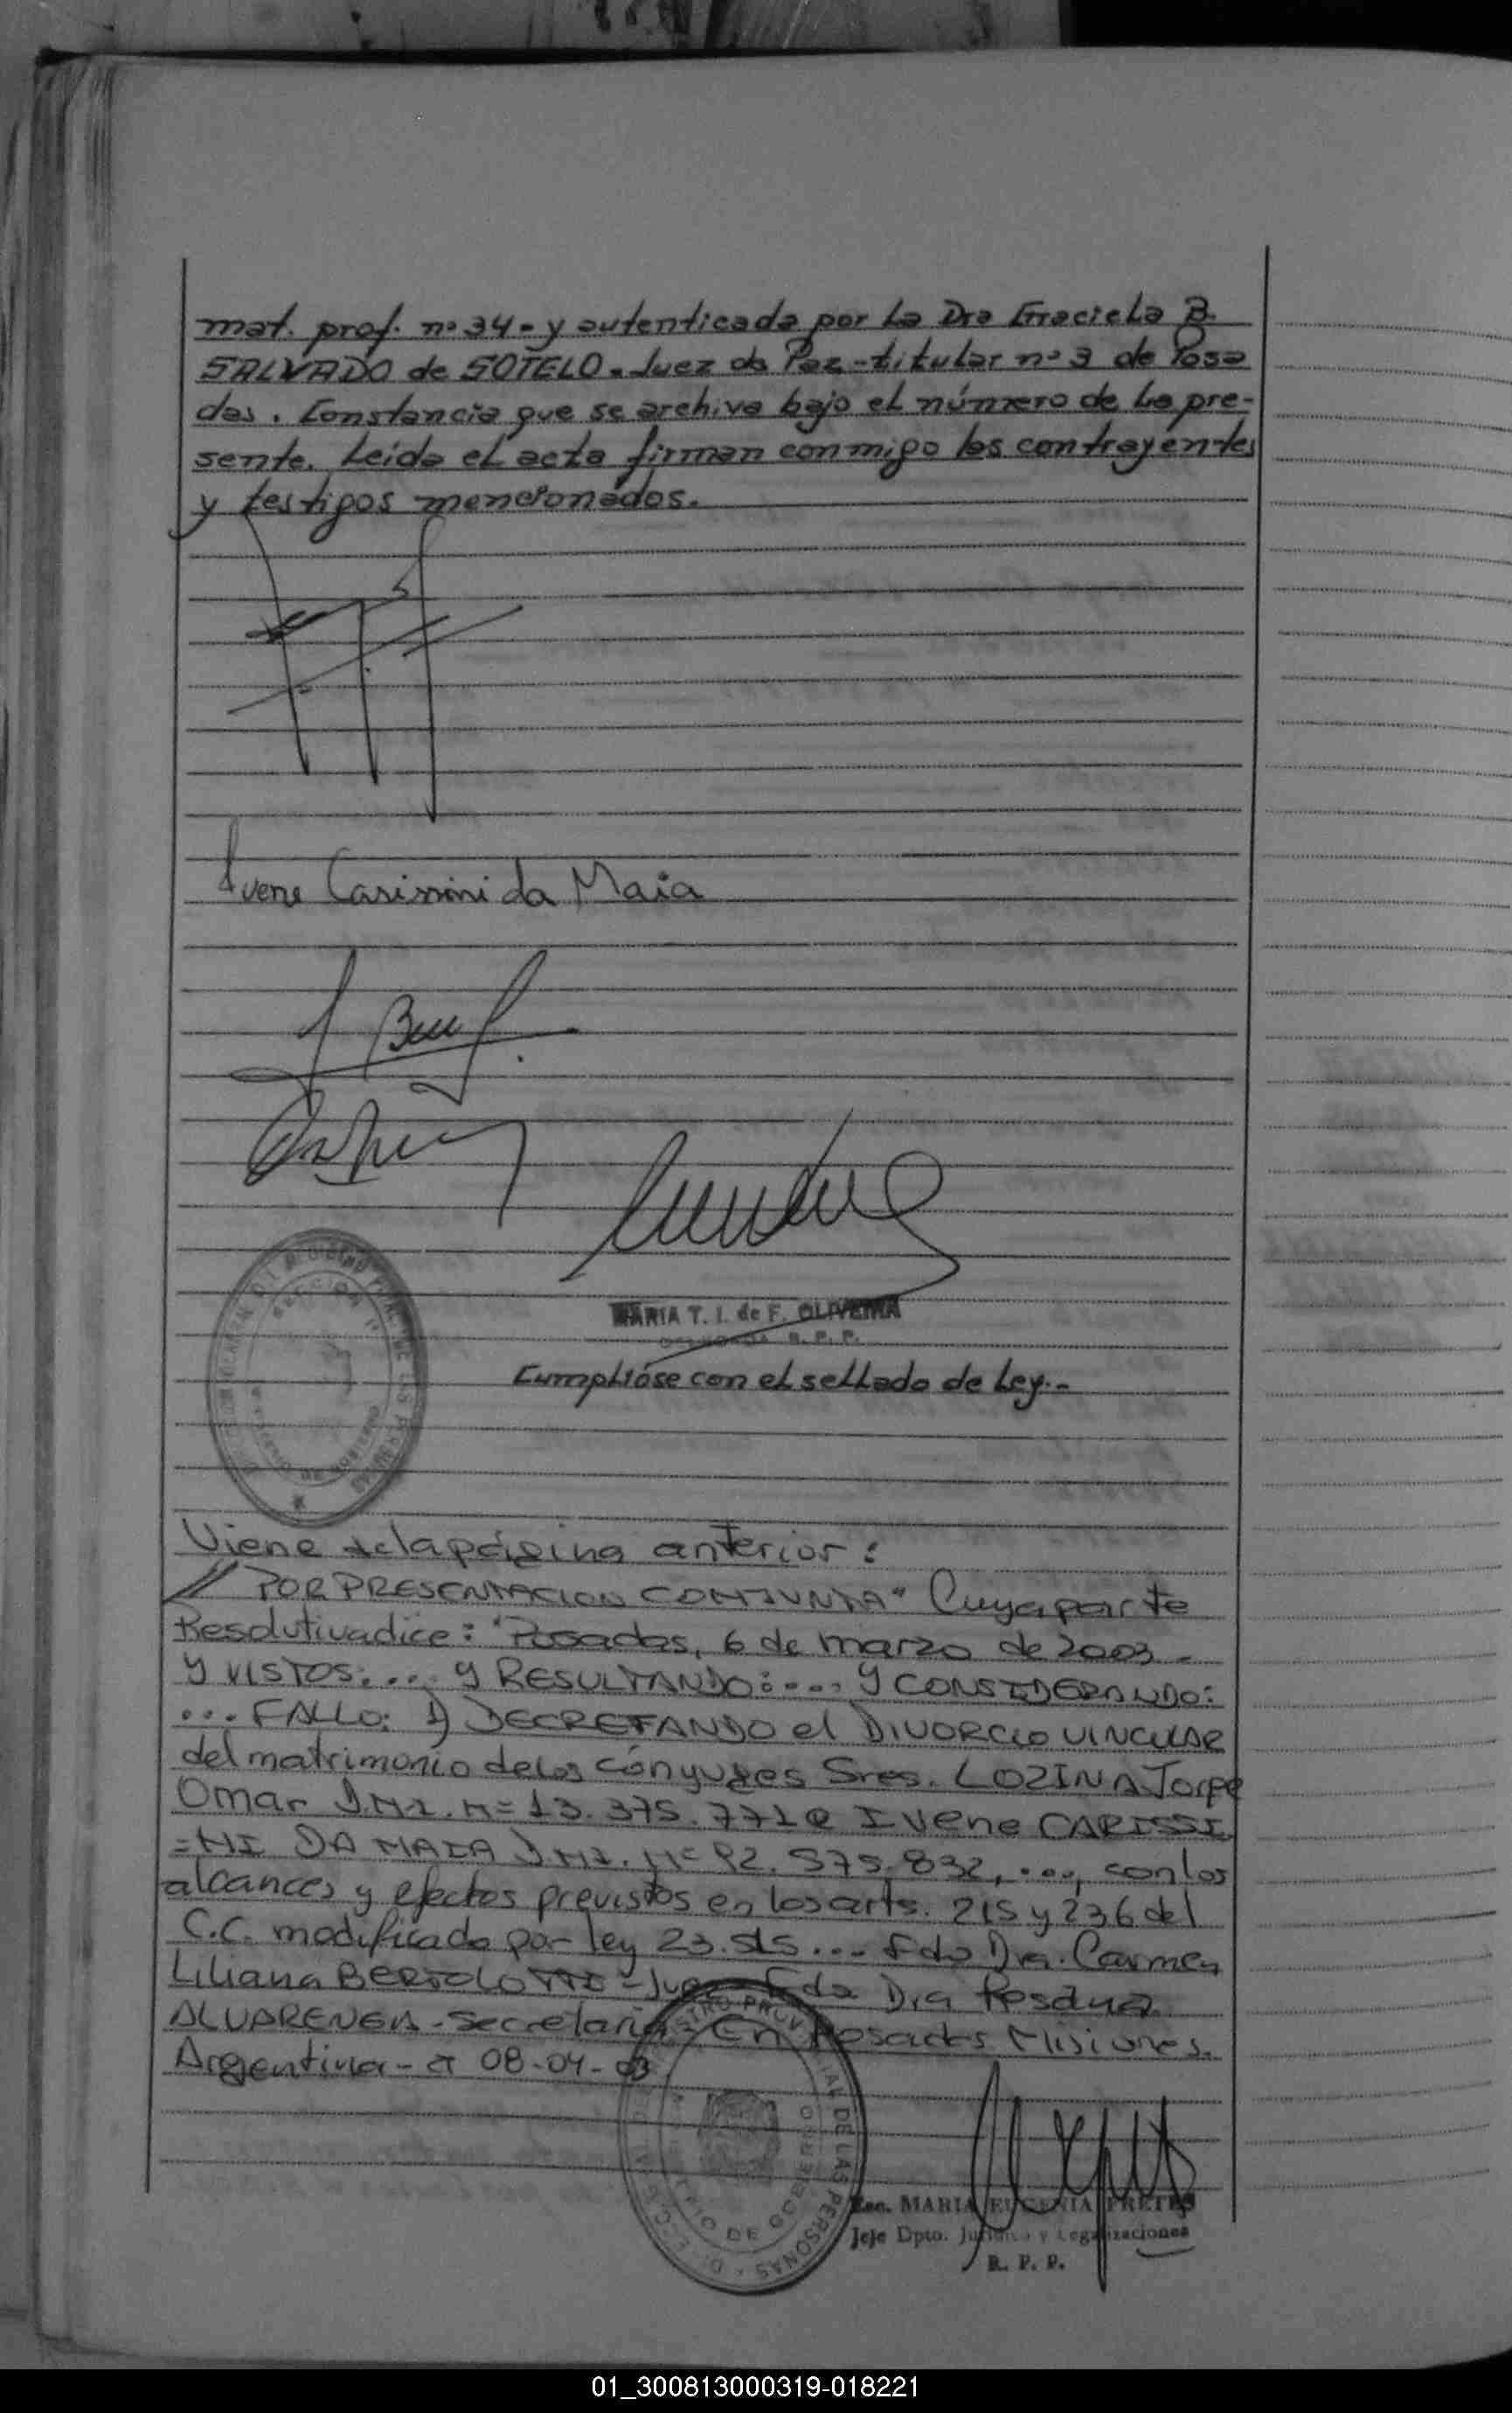 mat. prof. nº 34 - y autenticada por la Dra Graciela B.
SALVADO de SOTELO. Juez de Paz - titular nº 3 de Posa
das. Constancia que se archiva bajo el número de la pre-
sente. Leída el acta firman conmigo los contrayentes
y testigos mencionados.
Ivene Carissimi da Maia
MARIA T. I. de F. OLIVEIRA
R. P. P.
Cumplióse con el sellado de Ley.-
Viene de la página anterior:
// POR PRESENTACION CONJUNTA" Cuya parte
Resolutiva dice: "Posadas, 6 de marzo de 2003.-
Y VISTOS: ... y RESULTANDO: ... Y CONSIDERANDO:
... FALLO: 1) DECRETANDO el DIVORCIO VINCULAR
del matrimonio de los cónyuges Sres. LOZINA Jorge
Omar D.N.I. Nº 13.375.771 e Ivene CARISSI
=MI DA MAIA D.N.I. Nº 92.575.832, ..., con los
alcances y efectos previstos en los arts. 215 y 236 del
C.C. modificado por ley 23.515 ... Fdo Dra. Carmen
Liliana BERTOLOTTI - Juez - Fdo Dra
ALVARENGA - Secretaria - En Posadas Misiones.
Argentina - a 08-04-03
PROVINCIAL DE LAS PERSONAS
DE GOBIERNO
Esc. MARIA EUGENIA PRETES
Jefe Dpto. Jurídico y Legalizaciones
R. P. P.
01_300813000319-018221